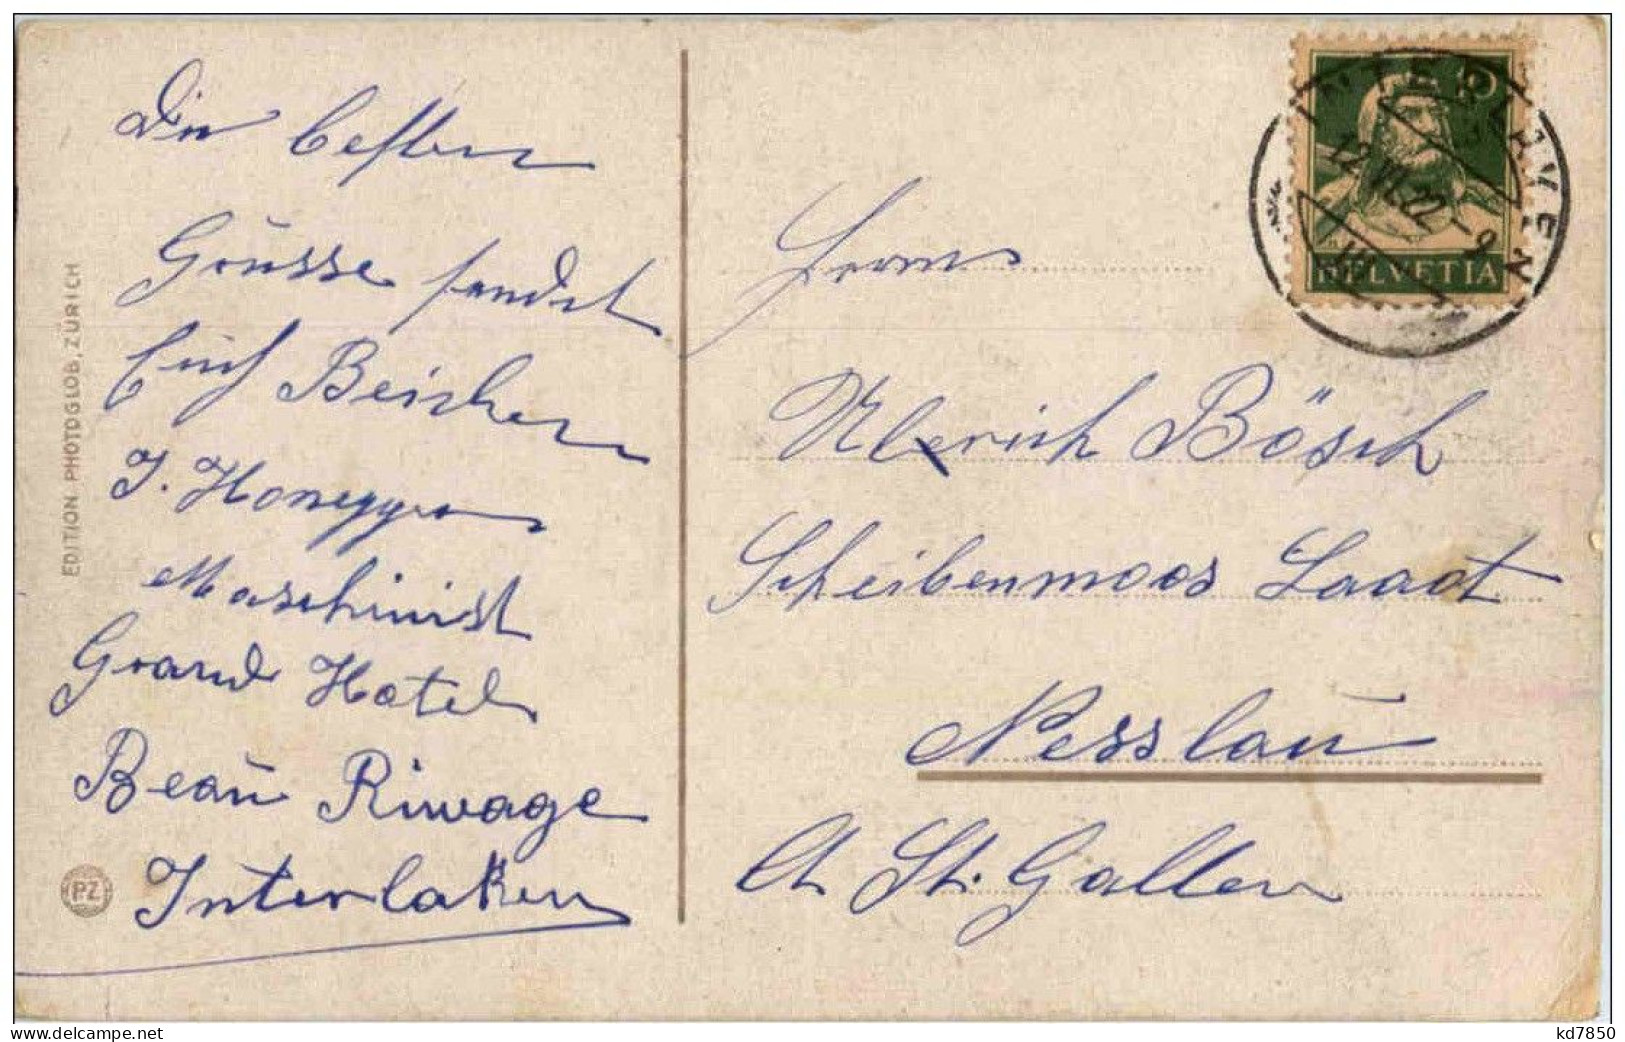 Die besten
Grüsse sendet
Euch Beichen
J. Honegger
Maschinist
Grand Hotel
Beau Riwage
Interlaken
EDITION PHOTOGLOB, ZÜRICH
PZ
10
HELVETIA
INTERLAKEN
12.VI.22-9
Herrn
Ulerich Bösch
Scheibenmoos Laad
Nesslau
Ct St. Gallen
www.delcampe.net
kd7850